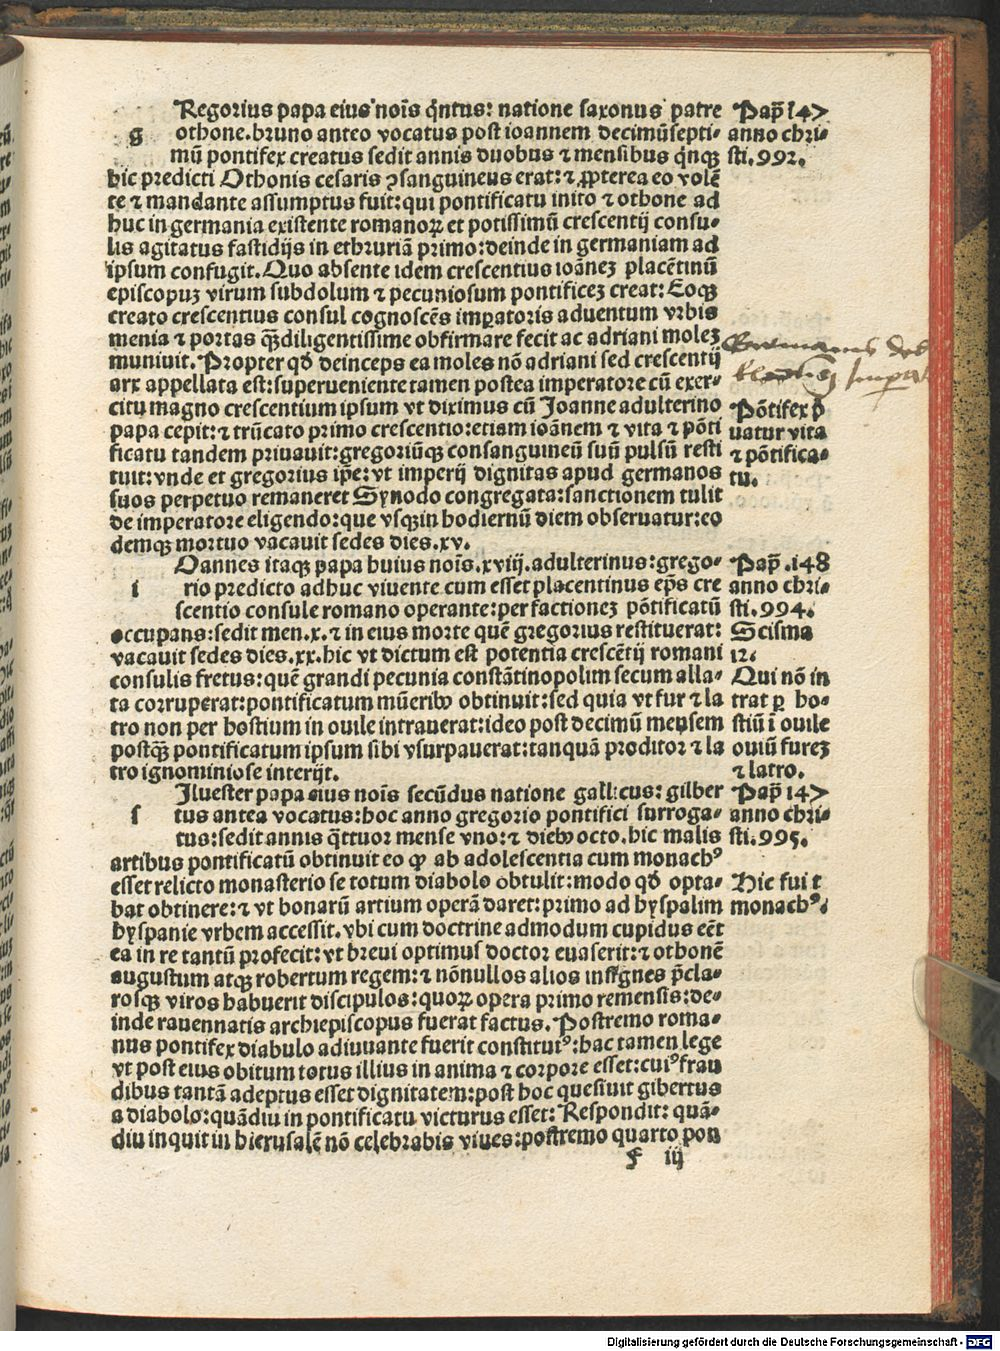 Regorius papa eius noīs q̄ntus: natione saxonus patre
g othone. bruno anteo vocatus post ioannem decimū septi-
mū pontifex creatus sedit annis duobus ⁊ mensibus q̄nqꝫ
hic predicti Othonis cesaris ꝯsanguineus erat: ⁊ ꝓpterea eo volē
te ⁊ mandante assumptus fuit: qui pontificatu inito ⁊ othone ad
huc in germania existente romanoꝝ et potissimū crescentij consu-
lis agitatus fastidijs in ethruriā primo: deinde in germaniam ad
ipsum confugit. Quo absente idem crescentius ioāneꝫ placētinū
episcopuꝫ virum subdolum ⁊ pecuniosum pontificeꝫ creat: Eoqꝫ
creato crescentius consul cognoscēs imꝑatoris aduentum vrbis
menia ⁊ portas q̄ꝫdiligentissime obfirmare fecit ac adriani moleꝫ
muniuit. Propter qđ deinceps ea moles nō adriani sed crescentij
arx appellata est: superueniente tamen postea imperatore cū exer-
citu magno crescentium ipsum vt diximus cū Joanne adulterino
papa cepit: ⁊ trūcato primo crescentio: etiam ioānem ⁊ vita ⁊ pōti
ficatu tandem priuauit: gregoriūqꝫ consanguineū suū pulsū resti
tuit: vnde et gregorius ip̄e: vt imperij dignitas apud germanos
suos perpetuo remaneret Synodo congregata: sanctionem tulit
de imperatore eligendo: que vsqꝫin hodiernū diem obseruatur: eo
demqꝫ mortuo vacauit sedes dies. xv.
Oannes itaqꝫ papa huius noīs. xviij. adulterinus: grego-
i rio predicto adhuc viuente cum esset placentinus ep̄s cre
scentio consule romano operante: per factioneꝫ pōtificatū
occupans: sedit men. x. ⁊ in eius morte quē gregorius restituerat:
vacauit sedes dies. xx. hic vt dictum est potentia crescētij romani
consulis fretus: quē grandi pecunia constātinopolim secum alla-
ta corruperat: pontificatum mūeribꝰ obtinuit: sed quia vt fur ⁊ la
tro non per hostium in ouile intrauerat: ideo post decimū mensem
postq̄ꝫ pontificatum ipsum sibi vsurpauerat: tanquā proditor ⁊ la
tro ignominiose interijt.
Iluester papa eius noīs secūdus natione gallicus: gilber
s tus antea vocatus: hoc anno gregorio pontifici surroga-
tus: sedit annis q̄ttuor mense vno: ⁊ diebꝰ octo. hic malis
artibus pontificatū obtinuit eo ꝙ ab adolescentia cum monachꝰ
esset relicto monasterio se totum diabolo obtulit: modo qđ opta-
bat obtinere: ⁊ vt bonarū artium operā daret: primo ad hyspalim
hyspanie vrbem accessit. vbi cum doctrine admodum cupidus eēt
ea in re tantū profecit: vt breui optimus doctor euaserit: ⁊ othonē
augustum atqꝫ robertum regem: ⁊ nōnullos alios insignes p̄cla-
rosqꝫ viros habuerit discipulos: quoꝝ opera primo remensis: de-
inde rauennatis archiepiscopus fuerat factus. Postremo roma-
nus pontifex diabulo adiuuante fuerit constitutꝰ: hac tamen lege
vt post eius obitum totus illius in anima ⁊ corpore esset: cuiꝰ frau
dibus tantā adeptus esset dignitatem: post hoc quesiuit gibertus
a diabolo: quādiu in pontificatu victurus esset: Respondit: quā-
diu inquit in hierusalē nō celebrabis viues: postremo quarto pon
f iij
Pap̄ 147
anno chri-
sti. 992.
Pōtifex p̄
uatur vita
⁊ pōtifica-
tu.
Pap̄. 148
anno chri-
sti. 994.
Scisma
12.
Qui nō in
trat ꝑ ho-
stiū ī ouile
ouiū fureꝫ
⁊ latro.
Pap̄ 147
anno chri-
sti. 995.
Hic fuit
monachꝰ.
Digitalisierung gefördert durch die Deutsche Forschungsgemeinschaft - DFG